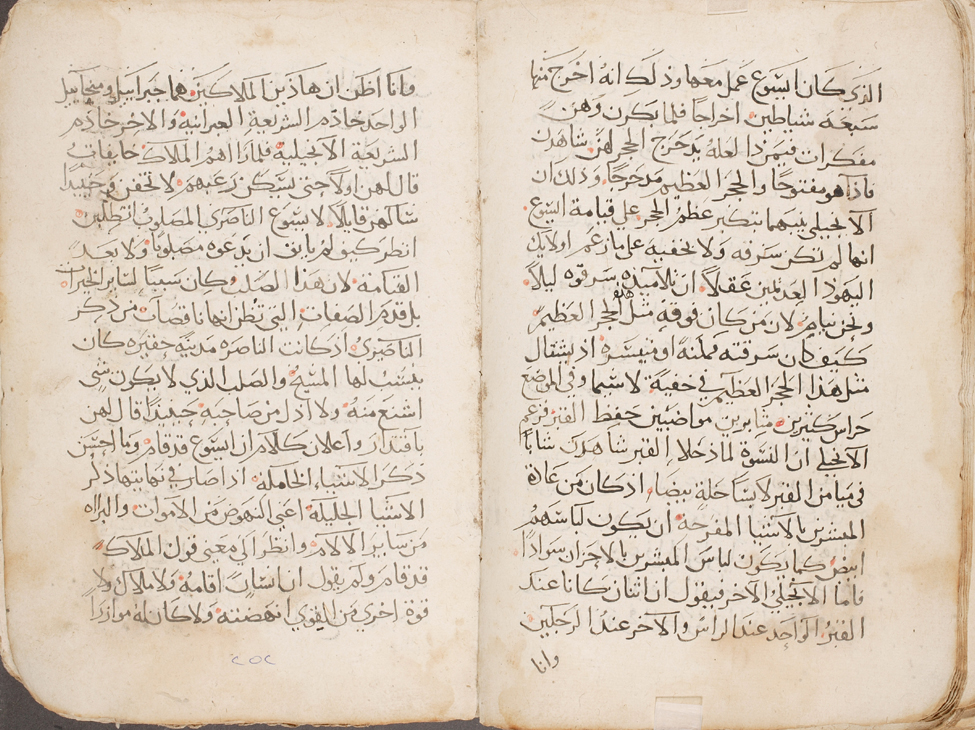 الذي كان ايسوع عمل معها وذلك انه اخرج منها
سبعة شياطين اخراجًا فلما بكرن وهن
مفكرات فيمن ذا لعله يدحرج الحجر لهن شاهدن
فاذا هو مفتوحًا والحجر العظيم مدحرجًا وذلك ان
الانجيلي ينبهنا بتكبير عظم الحجر علي قيامة ايسوع
انها لم تكن سرقه ولا بخفيه علي ما زعم اولايك
اليهود العديمين عقلاً ان تلاميذه سرقوه ليلاً
ونحن نيام لان من كان فوقه مثل هذا الحجر العظيم
كيف كان سرقته ممكنة او متيسرة اذ ينتقال
مثل هذا الحجر العظيم في خفية لاسيما وفي الموضع
حراس كثيرين مثابرين مواضبين حفظ القبر فزعم
الانجيلي ان النسوة لما دخلا القبر شاهدن شابًا
في ميامن القبر لابسًا حلة بيضا اذ كان من عادة
المبشرين بالاشيا المفرحة ان يكون لباسهم
ابيض كما يكون لباس المبشرين بالاحزان سوادًا
فاما الانجيلي الاخر فيقول ان اثنان كانا عند
القبر الواحد عند الراس والاخر عند الرجلين
وانا
وانا اظن ان هاذين الملاكين هما جبراييل وميخاييل
الواحد خادم الشريعة العبرانية والاخر خادم
الشريعة الانجيلية فلما راهم الملاك خايفات
قال لهن اولا حتي يسكن رعبهم لا تخفن وحينيدًا
سالهن قايلاً لايسوع الناصري المصلوب اتطلبن
انظر كيف لم يانف ان يدعوه مصلوبًا ولا بعد
القيامة لان هذا الصلب كان سببًا لساير الخيرات
بل قدم الصفات التي تظن انها ناقصات من ذكر
الناصري اذ كانت الناصره مدينة حقيره كان
ينسب لها المسيح والصلب الذي لا يكون شي
اشنع منه ولا اذل من صاحبه حينيدًا قال لهن
باقتدار واعلان كلام ان ايسوع قد قام وما احسن
ذكر الاشياء الخاملة اذا صار في نهايتها ذكر
الاشيا الجليلة اعني النهوض من الاموات والبراه
من ساير الالام وانظر الي معني قول الملاك
قد قام ولم يقول ان انسان اقامه ولا ملاك ولا
قوة اخري من القوي انهضته ولا كان له موازرًا
٢٥٢